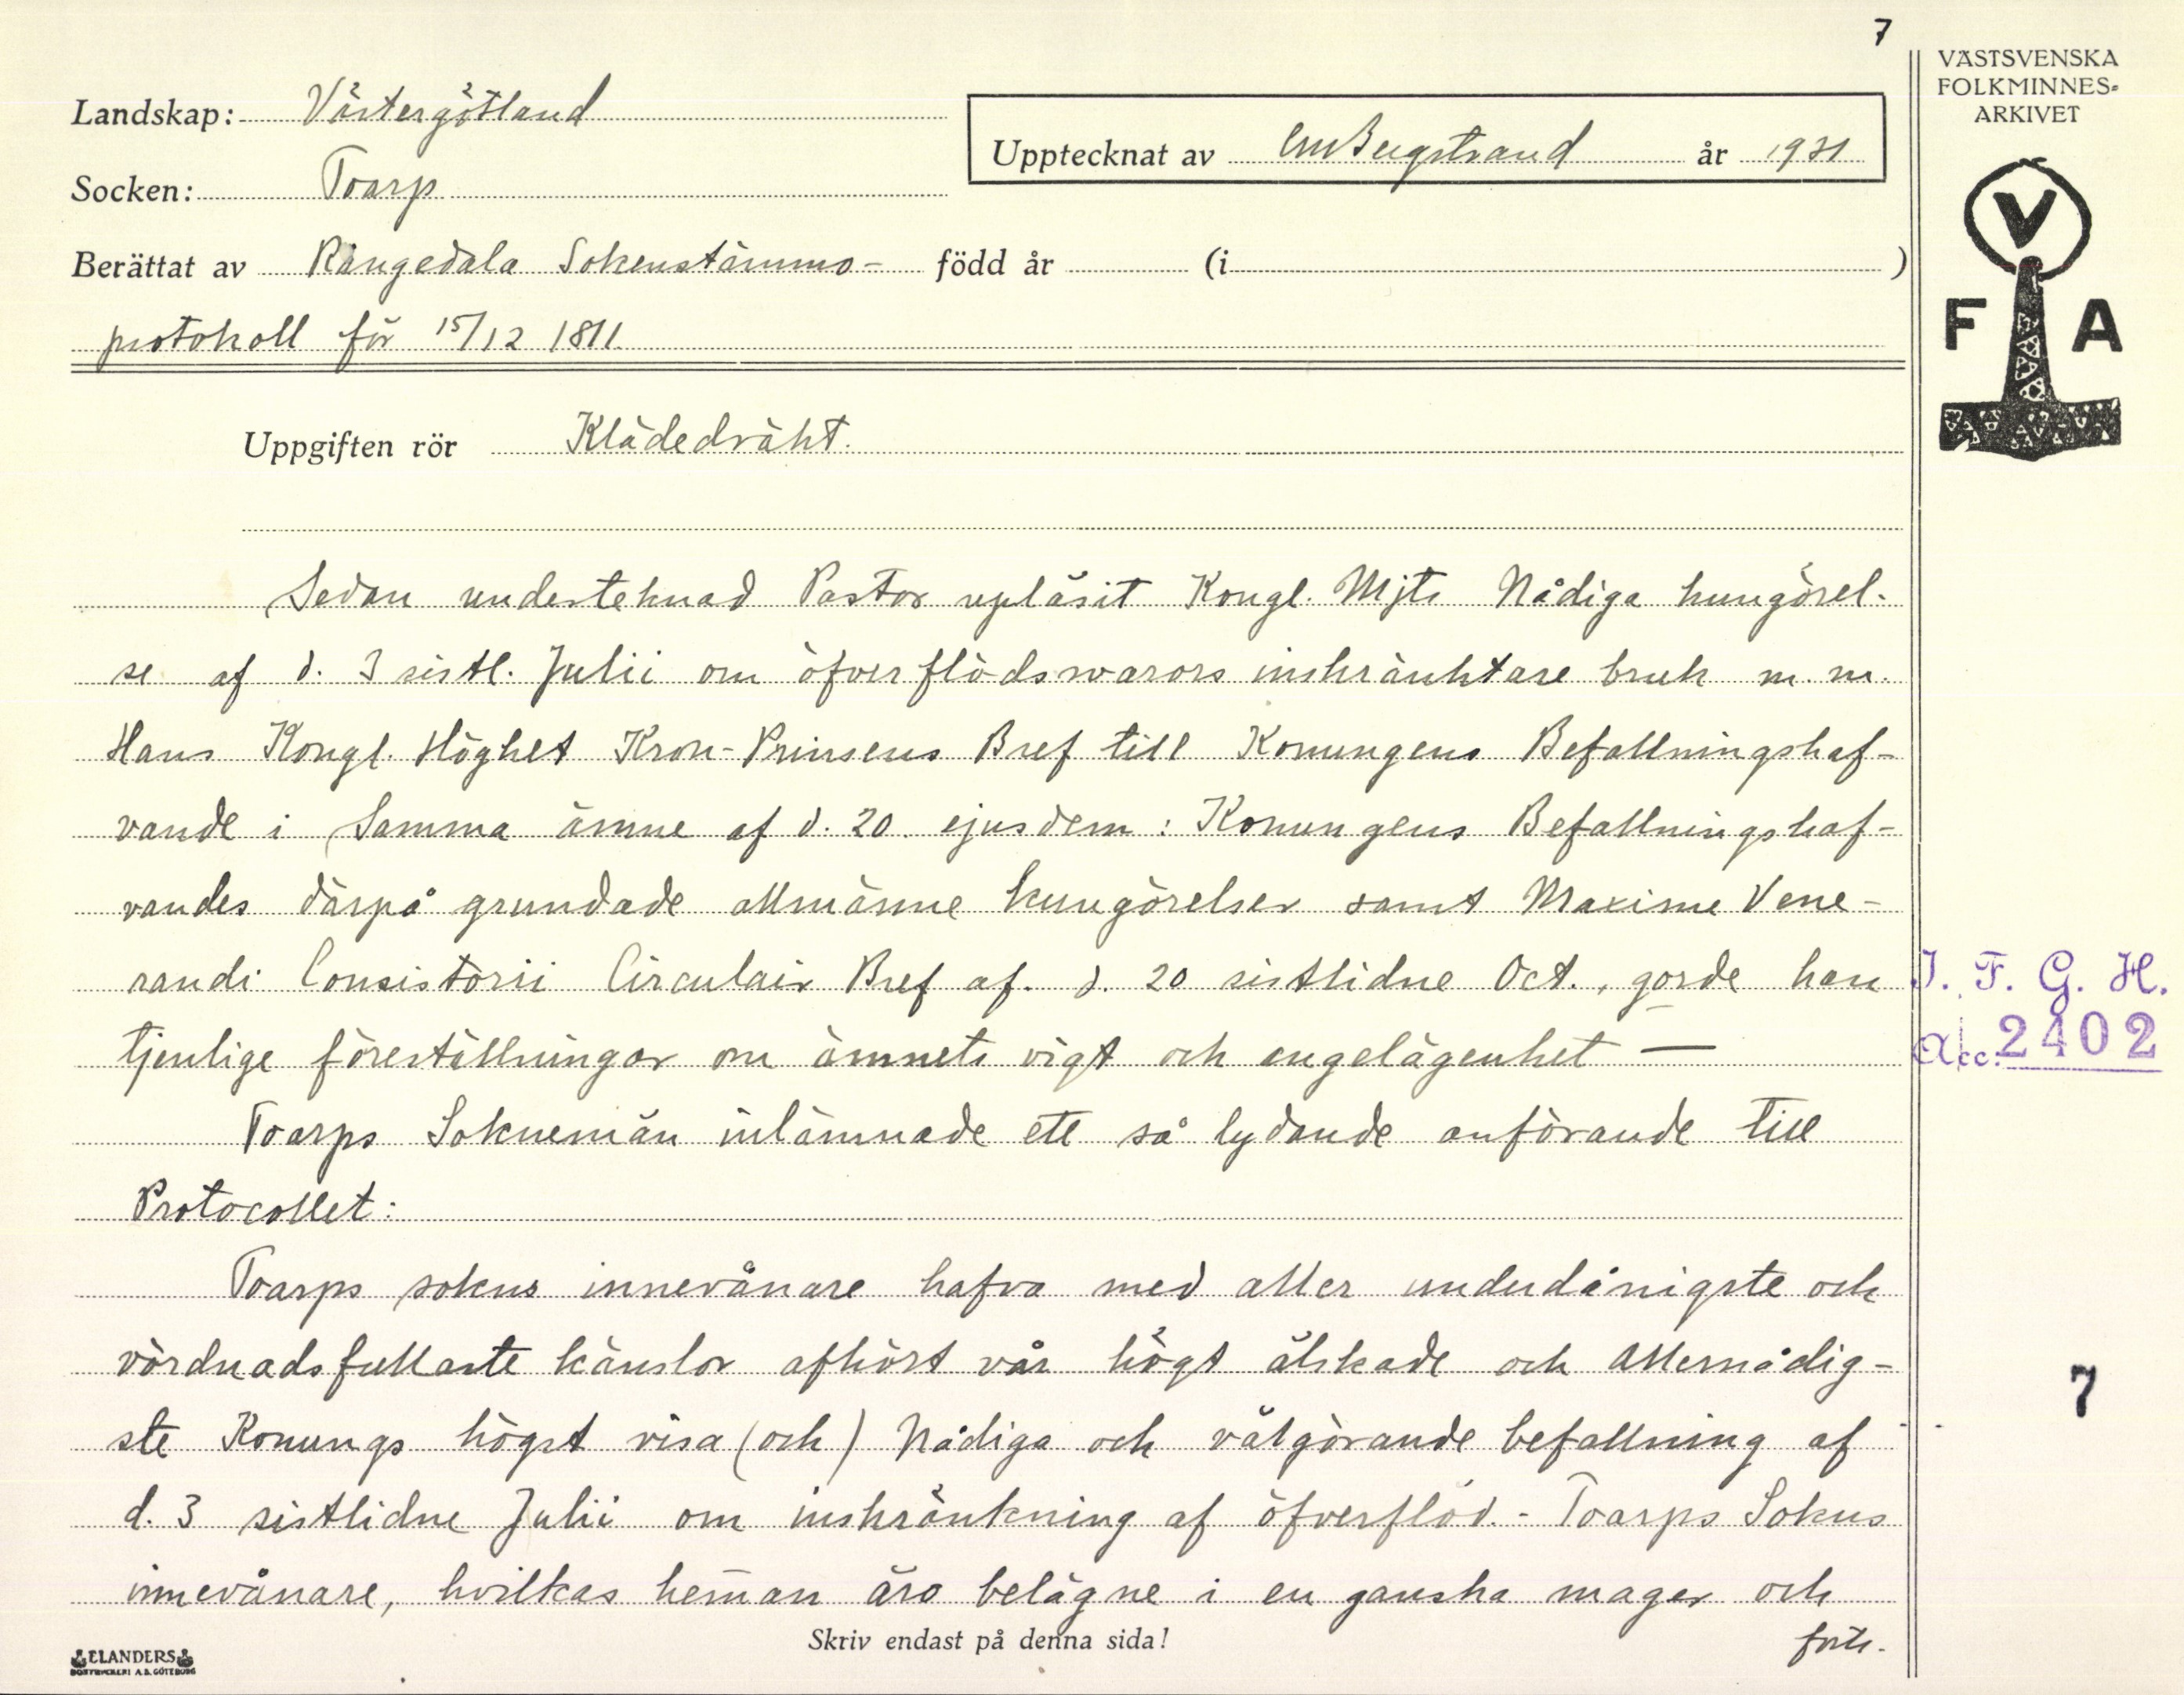 7
VÄSTSVENSKA
FOLKMINNES-
ARKIVET
Landskap: Västergötland
Upptecknat av CM Bergstrand år 1931
Socken: Toarp
Berättat av Rångedala Sokenstämmo- född år (i )
protokoll för 15/12 1811
V
F A
Uppgiften rör Klädedräkt.
Sedan underteknad Pastor upläsit Kongl. Mjts Nådiga kungörel-
se af d. 3 sistl. Julii om öfverflödswarors inskränktare bruk m. m.
Hans Kongl. Höghet Kron-Prinsens Bref till Konungens Befallningshaf-
vande i Samma ämne af d. 20. ejusdem: Konungens Befallningshaf-
vandes därpå grundade allmänne kungörelser samt Maxime Vene-
randi Consistorii Circulair Bref af. d. 20 sistlidne Oct., gorde han
tjenlige föreställningar om ämnets vigt och angelägenhet —
Toarps Soknemän inlämnade ett så lydande anförande till
Protocollet:
Toarps sokns innevånare hafva med aller underdånigste och
vördnadsfullaste känslor afhört vår högt älskade och Allernådig-
ste Konungs högst visa (och) Nådiga och välgörande befallning af
d. 3 sistlidne Julii om inskränkning af öfverflöd. - Toarps Sokns
innevånare, hvilkas hem̄an äro belägne i en ganska mager och
forts.
Skriv endast på denna sida!
ELANDERS
BOKTRYCKERI A.B. GÖTEBORG
I. F. G. H.
Acc. 2402
7